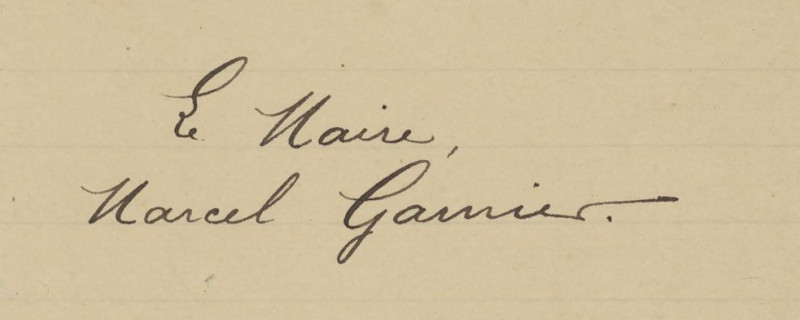 Le Maire,
Marcel Garnier.